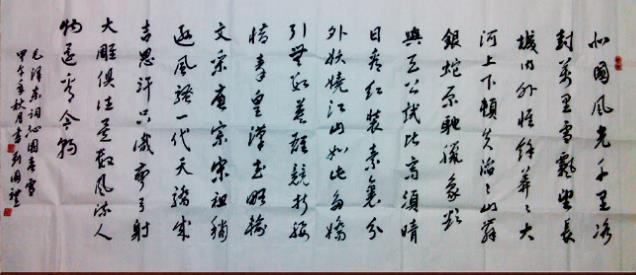 北國风光千里冰
封萬里雪飘望长
城内外惟馀莽々大
河上下顿失滔々山舞
银蛇原驰腊象欲
與天公试比高须晴
日看红装素裹分
外妖娆江山如此多娇
引無数英雄競折腰
惜秦皇漢武略输
文采唐宗宋祖稍
逊风骚一代天骄成
吉思汗只识弯弓射
大雕俱往矣数风流人
物还看今朝
毛泽东词沁园春雪
甲午年秋月書